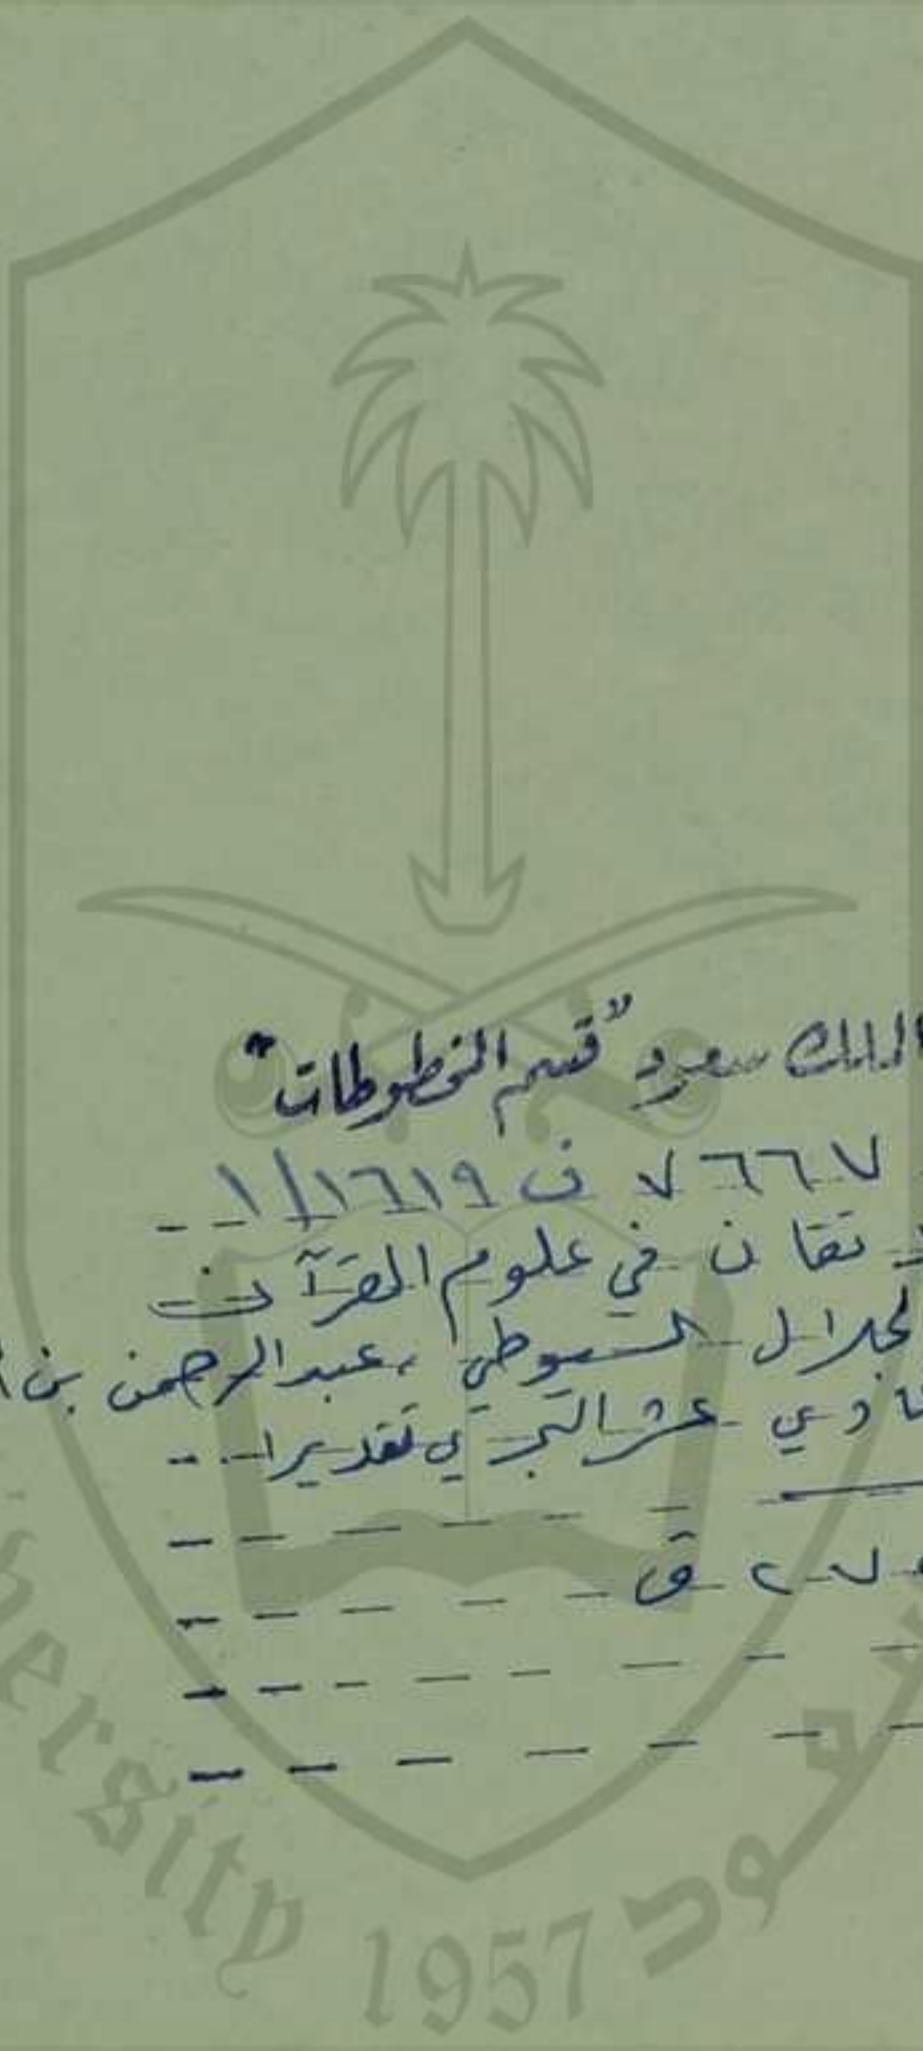 الملك سعود "قسم المخطوطات"
٧٦٦٧ ف ١٦١٩/١
تقان في علوم القرآن
لجلال السيوطي، عبدالرحمن بن
ادي عشر الهجري تقديرا
ق
1957